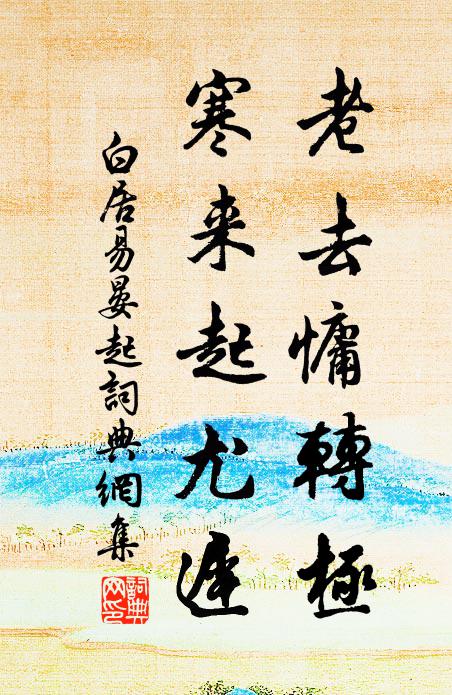 老去慵轉極
寒来起尤遲
白居易晏起詞典網集
詞典